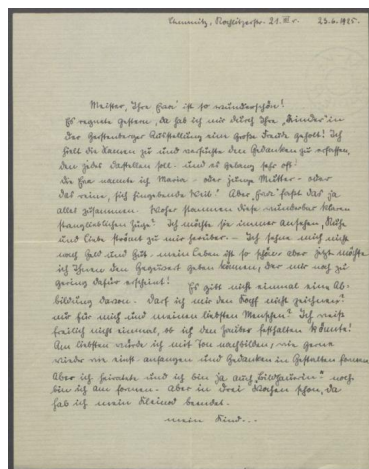 Chemnitz, Rochlitzerstr. 21. III r. 23.6.1925.
Meister, Ihre Eva' ist so wunderschön!
Es regnete gestern, da hab ich mir durch Ihre „Kinder" in
der Gerstenberger Ausstellung eine große Freude geholt! Ich
hielt die Namen zu und versuchte den Gedanken zu erfassen,
den jedes darstellen soll - und es gelang sehr oft!
die Eva nannte ich Maria - oder junge Mutter - oder
das reine, sich hingebende Weib! Aber „Eva" faßt das ja
alles zusammen. Woher stammen diese wunderbar klaren
Züge? Ich möchte sie immer ansehen, Ruhe
und Liebe strömt zu mir herüber - Ich sehne mich nicht
nach Geld und Gut - mein Leben ist so schön aber jetzt möchte
ich Ihnen den Gegenwert geben können, der mir noch zu
gering dafür erscheint! Es gibt nicht einmal eine Ab-
bildung davon. Darf ich mir den Kopf nicht zeichnen?
nur für mich und meinen liebsten Menschen? Ich weiß
freilich nicht einmal, ob ich den Zauber festhalten könnte!
Am liebsten würde ich mit Ton nachbilden, wie gerne
würde wie einst anfangen und Gedanken in Gestalten formen
Aber ich heiratete und ich bin ja auch „Bildhauerin" noch
bin ich am formen - aber in drei Wochen schon, da
hab ich mein Kleinod beendet.
mein Kind...